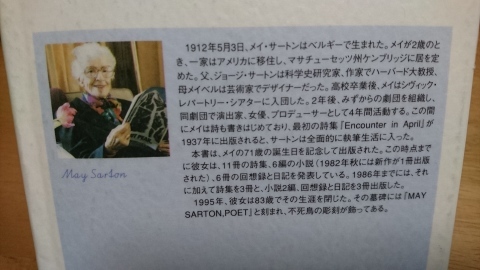 1912年5月3日、メイ・サートンはベルギーで生まれた。メイが2歳のと
き、一家はアメリカに移住し、マサチューセッツ州ケンブリッジに居を定
めた。父、ジョージ・サートンは科学史研究家、作家でハーバード大教授、
母メイベルは芸術家でデザイナーだった。高校卒業後、メイはシヴィック・
レパートリー・シアターに入団した。2年後、みずからの劇団を組織し、
同劇団で演出家、女優、プロデューサーとして4年間活動する。この間
にメイは詩も書きはじめており、最初の詩集『Encounter in April』が
1937年に出版されると、サートンは全面的に執筆生活に入った。
本書は、メイの71歳の誕生日を記念して出版された。この時点まで
に彼女は、11冊の詩集、6編の小説(1982年秋には新作が1冊出版
された)、6冊の回想録と日記を発表している。1986年までには、それ
に加えて詩集を3冊と、小説2編、回想録と日記を3冊出版した。
1995年、彼女は83歳でその生涯を閉じた。その墓碑には『MAY
SARTON,POET』と刻まれ、不死鳥の彫刻が飾ってある。
May Sarton